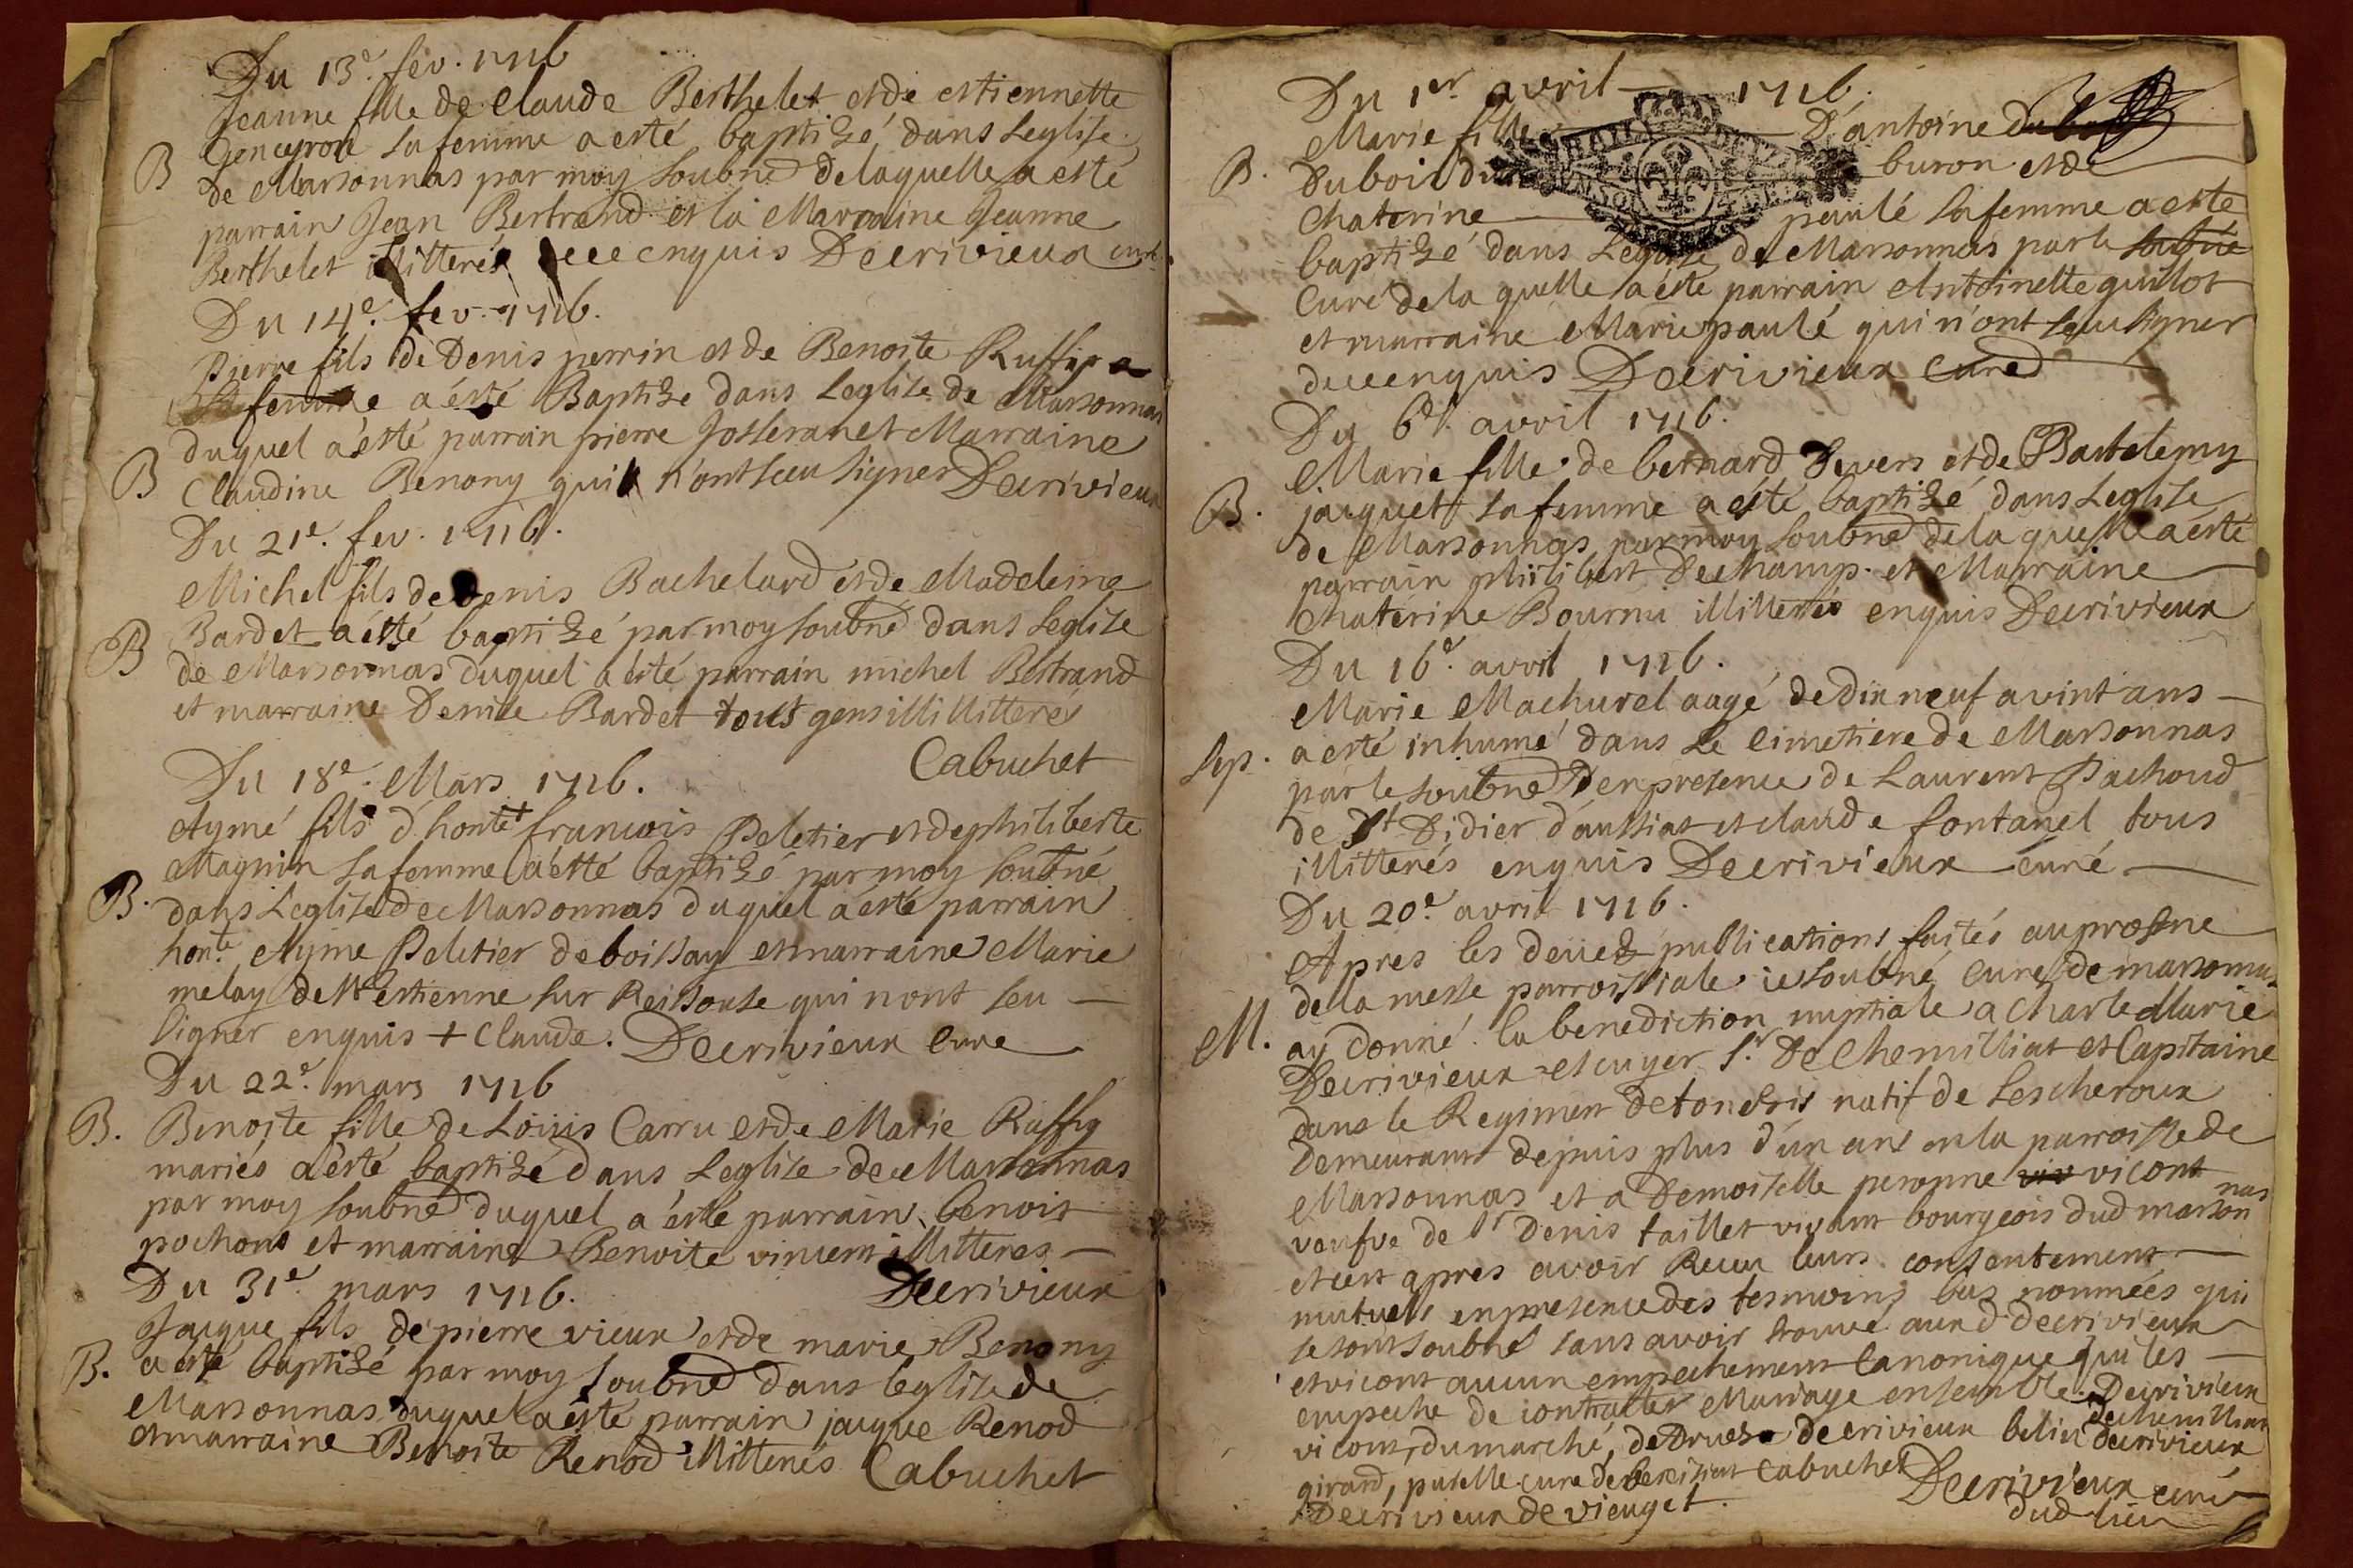 Du 13e. fev. 1716
Jeanne fille de Claude Berthelet et de estiennette
B Genceyron sa femme a esté baptizé dans Leglise
de Marsonnas par moy soubné delaquelle a este
parrain Jean Bertrand et la Marraine Jeanne
Berthelet illitterés enquis Decrivieux curé
Du 14e. fev. 1716.
Pierre fils de Denis perrin et de Benoite Ruffin
sa femme a ésté Baptize dans Leglise de Marsonnas
duquel a ésté parrain pierre Josseran et Marraine
B Claudine Benony qui n'ont sceu signer Decrivieux
Du 21e. fev. 1716.
Michel fils de Denis Bachelard et de Madeleine
B Bardet a ésté baptizé par moy soubné dans Leglise
de Marsonnas duquel a ésté parrain michel Bertrand
et marraine Denise Bardet tous gens illitterés
Cabuchet
Du 18e. Mars 1716.
Aymé fils d'honte + francois Peletier et de philiberte
Magnin sa femme a ésté baptizé par moy soubné
B. dans Leglise de Marsonnas duquel a ésté parrain
hont. Ayme Peletier de boissay et marraine Marie
melay de st estienne sur Reissouse qui nont seu
signer enquis + Claude. Decrivieux Cure
Du 22e. mars 1716
B. Benoite fille de Loüis Carru et de Marie Ruffy
mariés a ésté baptizé dans Leglise de Marsonnas
par moy soubné duquel a ésté parrain benoit
pochons et marraine Benoite vincent illitteres
Decrivieux
Du 31e. mars 1716.
Jaque fils de pierre vieux et de marie Benony
B. a ésté baptizé par moy soubné dans leglise de
Marsonnas duquel a ésté parrain jaque Renod
et marraine Benoite Renod illitterés Cabuchet
Du 1er. avril 1716.
Marie fille D'antoine
B. Dubois du buron et de
Chaterine paulé sa femme a esté
baptizé dans Leglise de Marsonnas par le
Curé de la quelle a éste parrain Antoinette guillot
et marraine Marie paulé qui n'ont sceu signer
de ce enquis Decrivieux Curé
Du 6e. avril 1716.
Marie fille de bernard Devers et de Bartelemy
B. jacquet sa femme a ésté baptizé dans Leglise
de Marsonnas par moy soubné de la quelle a esté
parrain philibert Dechamp. et Marraine
Chaterine Bournu illitterés enquis Decrivieux
Du 16e. avril 1716.
Marie Machurel aagé de dix neuf a vint ans
Sep. a esté inhumé dans Le Cimetiere de Marsonnas
par le soubné en presence de Laurent Pachoud
de St Didier d'aussiat et claude fontanel tous
illitterés enquis Decrivieux curé
Du 20e. avril 1716.
Apres les deuez publications faités au prosne
de la messe parroissiale ie soubné Curé de marsonnas
M. ay donné la benediction nuptiale a Charle Marie
Decrivieux escuyer Sr. De Chemilliat et Capitaine
dans le Regiment de natif de Lescheroux
Demeurant depuis plus d'un ans en la parroisse de
Marsonnas et a Demoiselle peronne vicont
veufve de Sr Denis taillet vivant bourgeois dud marsonnas
et cert apres avoir Receu leurs consentement
mutuels en presence des tesmoins bas nommées qui
se sont soubné sans avoir trouve auxd decrivieux
et vicont aucun empechement Canonique qui les
empeche de contracter Marriage ensemble. Decrivieux
dechemilliat
vicont, dumarché, decrivieux belin decrivieux
girard, curé de Cabuchet
Decrivieux de vieuget. Decrivieux curé
dud lieu